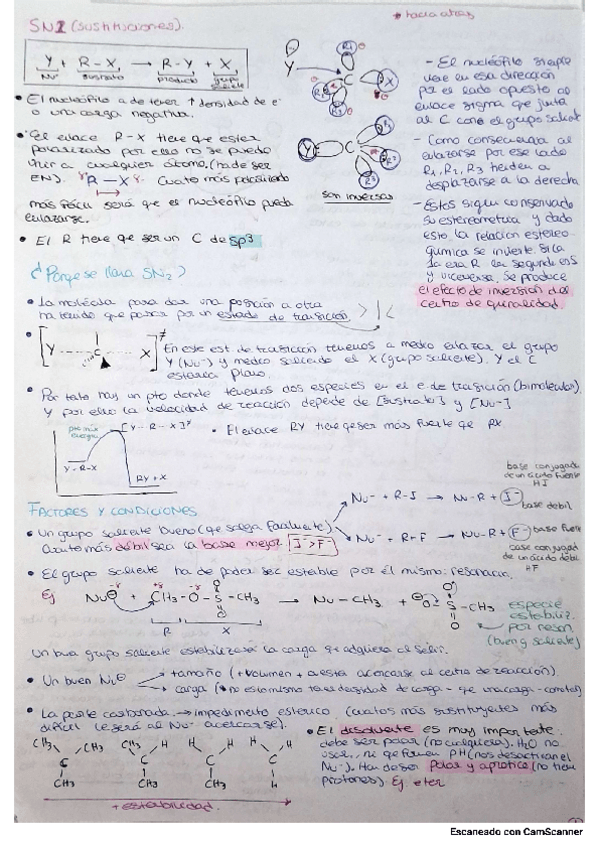 SN2 (sustituciones).
* hacia atrás
Y + R-X → R-Y + X
Nu⁻ sustrato producto grupo saliente
• El nucleófilo a de tener ↑ densidad de e⁻
o una carga negativa.
• El enlace R-X tiene que estar
polarizado por ello no se puede
unir a cualquier átomo, (ha de ser
EN). R-X Cuanto más polarizado
más fácil será que el nucleófilo pueda
enlazarse.
• El R tiene que ser un C de sp³
Y R₁ C X R₂ R₃
Y C R₁ R² R³
son inversas
- El nucleófilo siempre
viene en esa dirección
por el lado opuesto al
enlace sigma que junta
al C con el grupo saliente
- Como consecuencia al
enlazarse por ese lado
R₁, R₂, R₃ tienden a
desplazarse a la derecha
- Estos siguen conservando
su estereometría y dado
esto la relación estereo-
química se invierte si la
1a era R la segunda es S
y viceversa. Se produce
el efecto de inversión del
centro de quiralidad.
¿Porqe se llama SN₂?
• La molécula para dar una posición a otra
ha tenido que pasar por un estado de transición
• [Y ---- C --- X]≠ En este est de transición tenemos a medio enlazar el grupo
Y (Nu⁻) y medio saliendo el X (grupo saliente). Y el C
estaría plano
• Por tato hay un pto donde tenemos dos especies en el e de transición (bimolecular).
Y por ello la velocidad de reacción depende de [sustrato] y [Nu⁻]
[Y-R-X]≠
Y-R-X
RY + X
• El enlace RY tiene q ser más fuerte que RX
FACTORES Y CONDICIONES
• Un grupo saliente bueno (que salga facilmente)
Cuanto más débil sea la base mejor. I⁻ > F⁻
base conjugada
de un ácido fuerte
HI
Nu⁻ + R-I → Nu-R + I⁻ base débil
Nu⁻ + R-F → Nu-R + F⁻ base fuerte
base conjugad
de un ácido débil
HF
• El grupo saliente ha de poder ser estable por él mismo: resonancia.
Ej Nu⊖ + CH₃-O-S-CH₃ → Nu-CH₃ + ⊖O-S-CH₃
O O O O
R X
especie
estabiliz.
por reson.
(buen g saliente)
Un buen grupo saliente estabilizará la carga qe adquiera al salir.
• Un buen Nu⊖
→ tamaño (+volumen + cuesta acercarse al centro de reacción).
→ carga
• La parte carbonada → impedimento estérico (cuatos más sustituyentes más
difícil le será al Nu⁻ acercarse).
CH₃ CH₃ C CH₃
CH₃ H C CH₃
H H C CH₃
H H C H
+ estabilidad.
• El disolvente es muy importate
debe ser polar (no cualquiera). H₂O no
Nu⁻). Han de ser polar y aprótico (no tien
protones). Ej eter
Escaneado con CamScanner